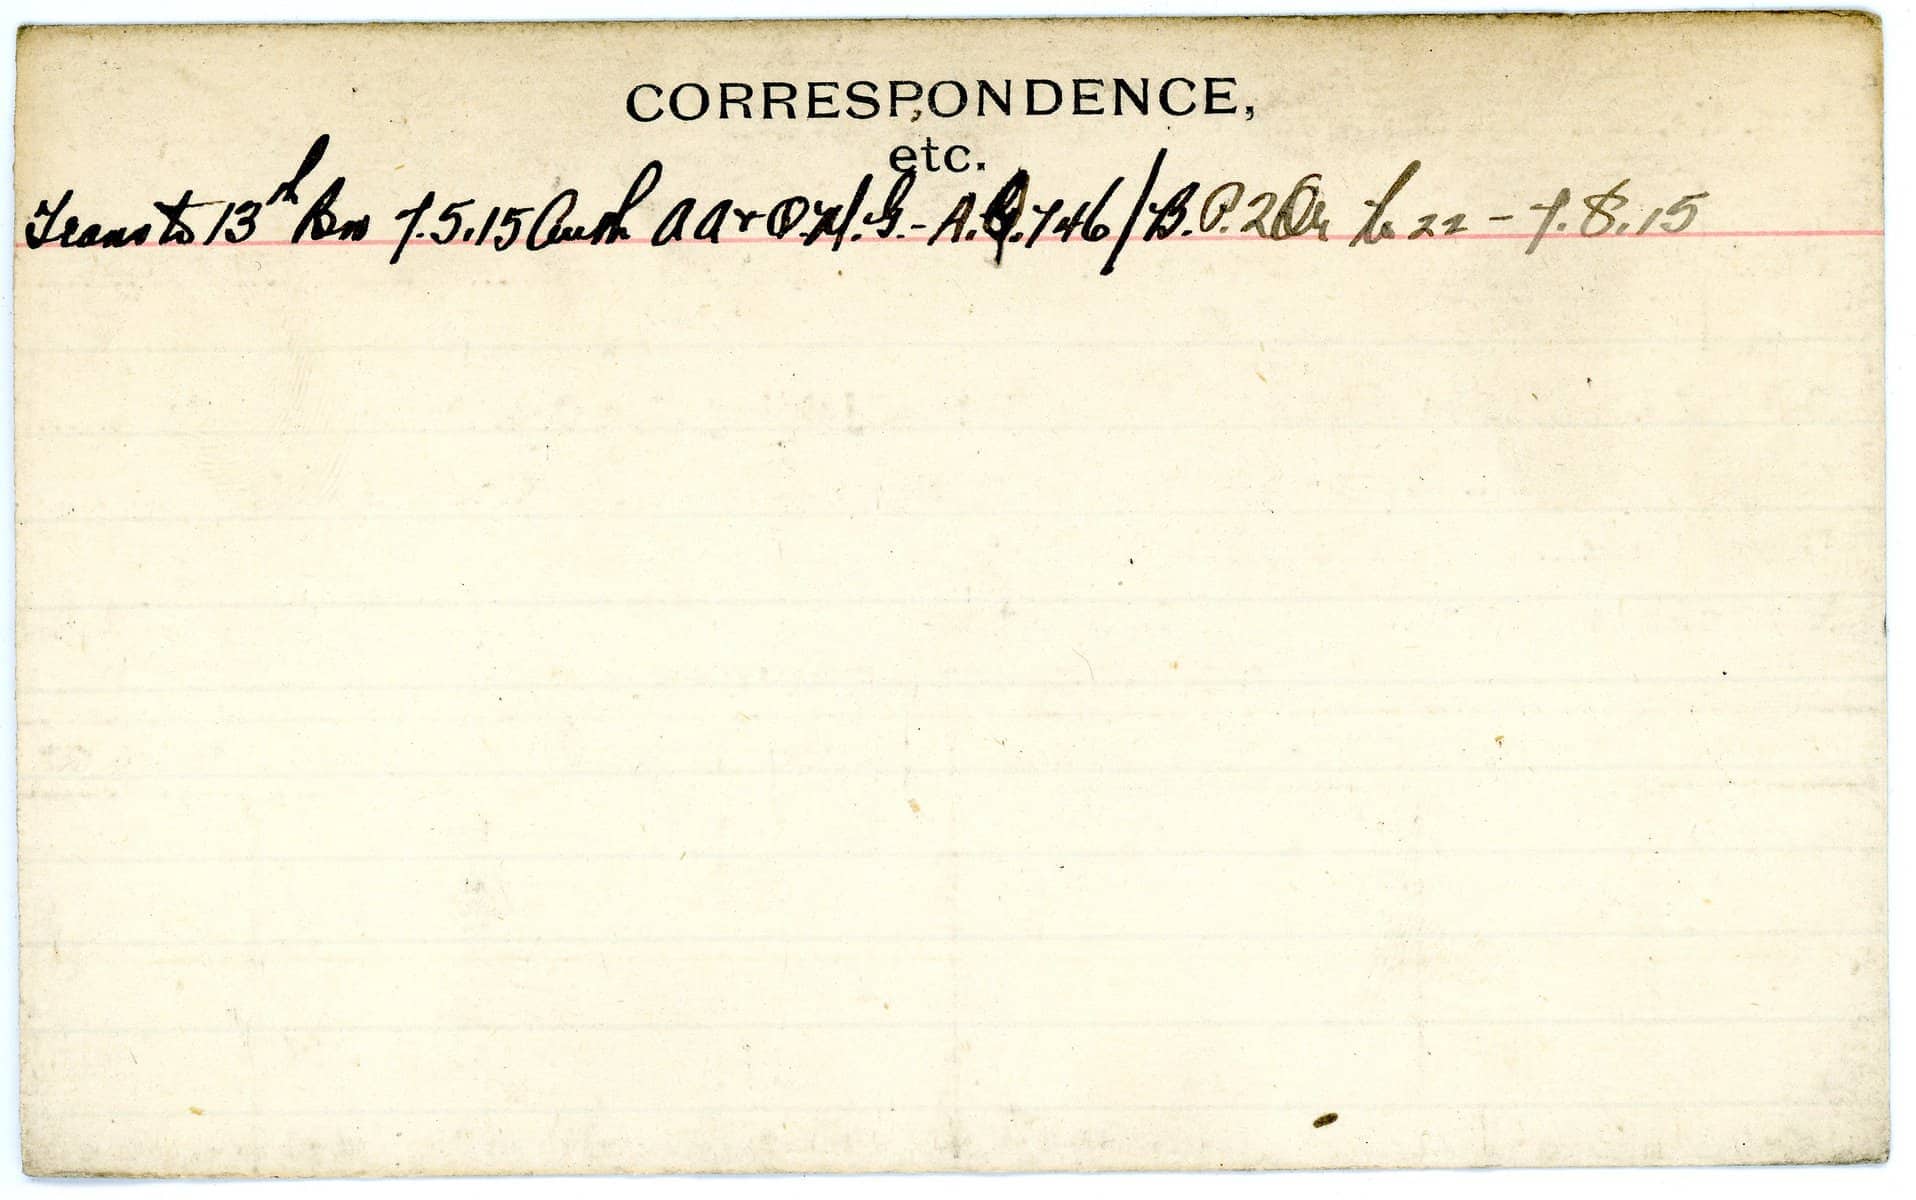 CORRESPONDENCE,
etc.
Trans to 13th Bn 7.5.15 Auth A A & Q.M.G. - A.Q.746/B. P. 2 Or 22 - 7.8.15